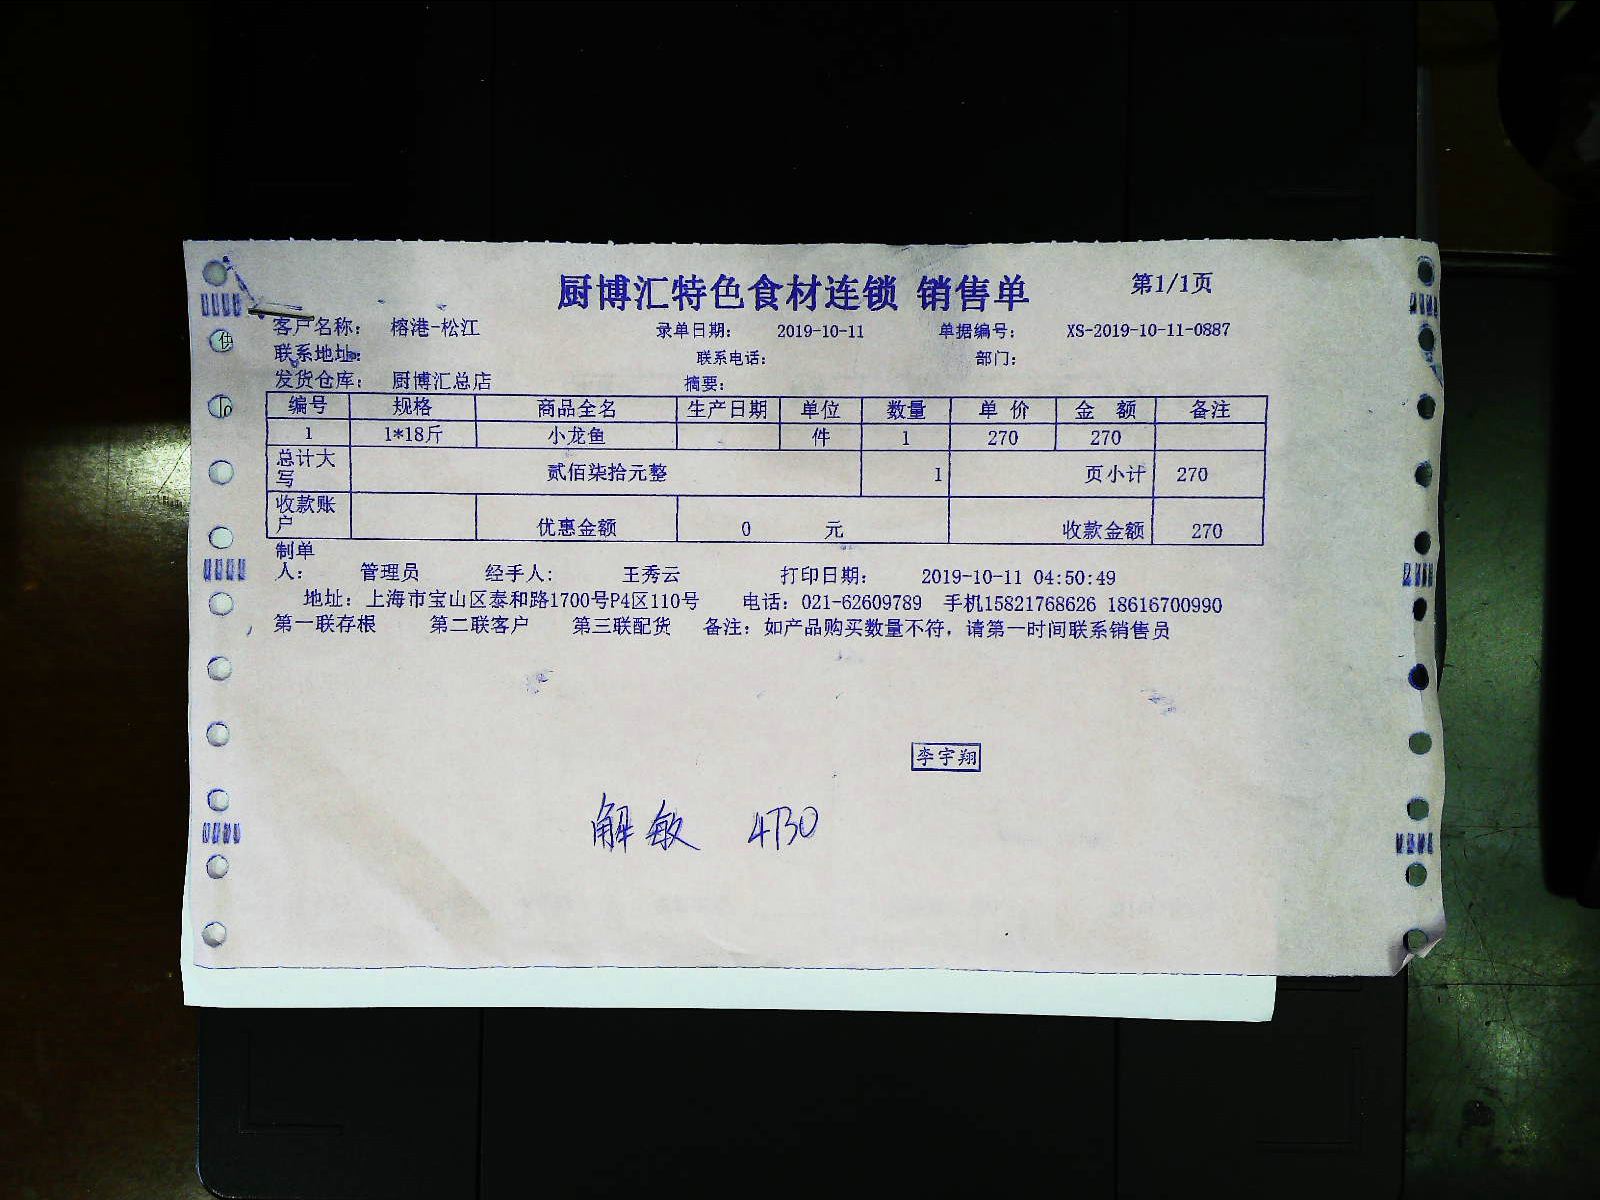 厨博汇特色食材连锁 销售单 第1/1页
客户名称： 榕港-松江 录单日期： 2019-10-11 单据编号： XS-2019-10-11-0887
联系地址： 联系电话： 部门：
发货仓库： 厨博汇总店 摘要：
编号 规格 商品全名 生产日期 单位 数量 单 价 金 额 备注
1 1*18斤 小龙鱼 件 1 270 270
总计大写 贰佰柒拾元整 1 页小计 270
收款账户 优惠金额 0 元 收款金额 270
制单人： 管理员 经手人： 王秀云 打印日期： 2019-10-11 04:50:49
地址：上海市宝山区泰和路1700号P4区110号 电话：021-62609789 手机15821768626 18616700990
第一联存根 第二联客户 第三联配货 备注：如产品购买数量不符，请第一时间联系销售员
李宇翔
解敏